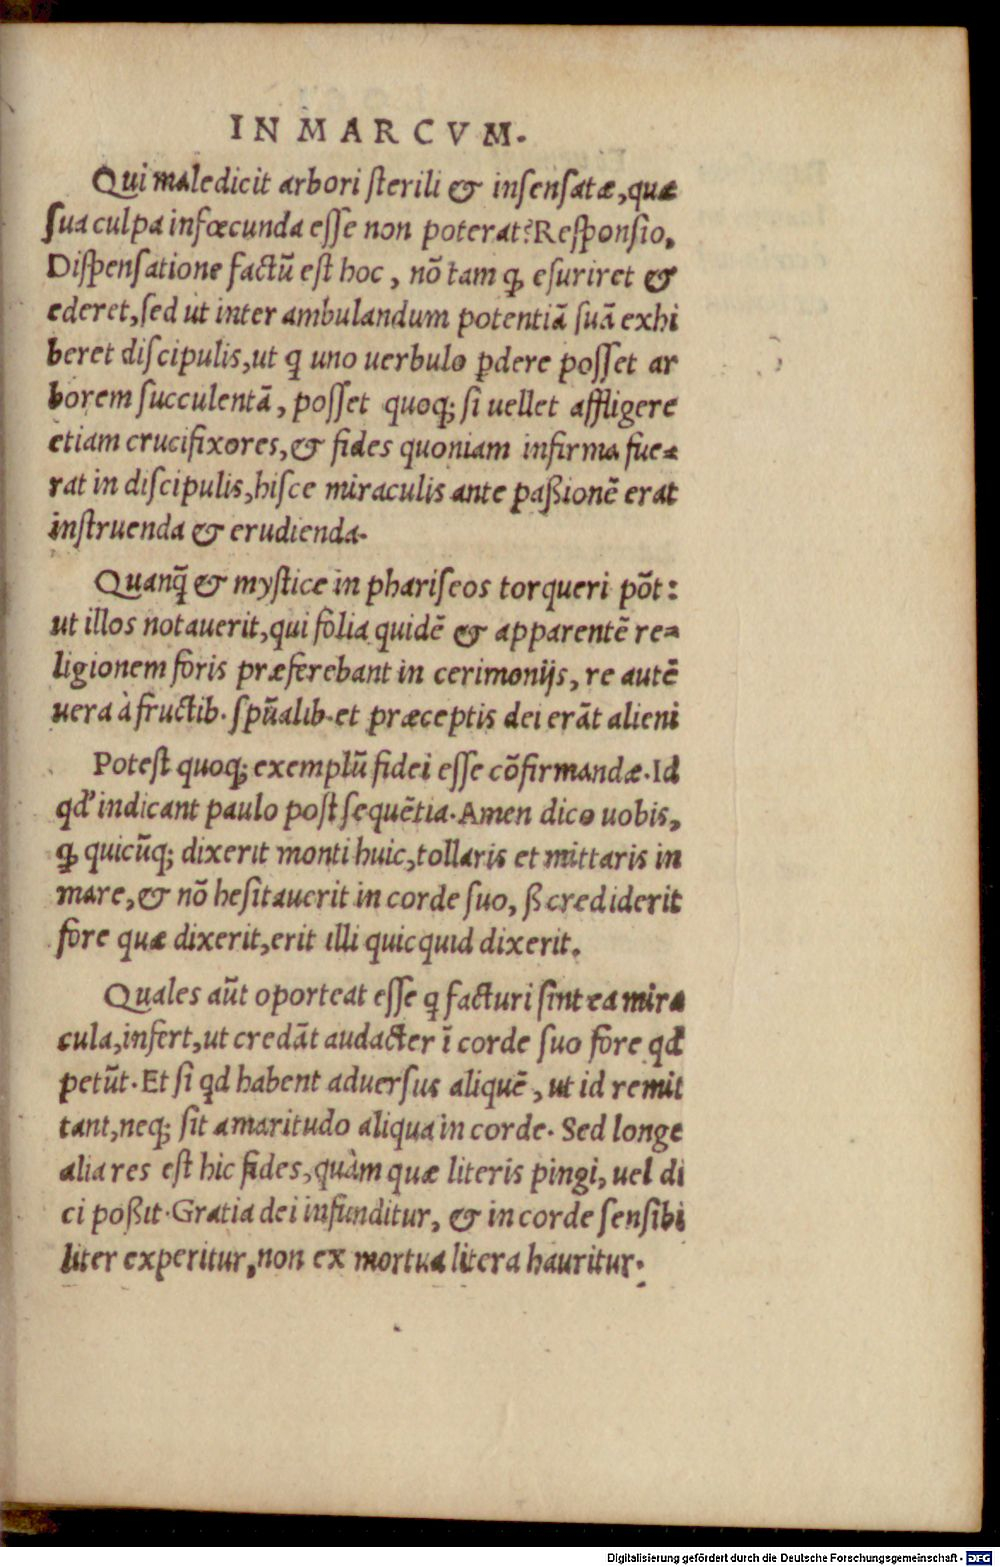 IN MARCVM.
Qui maledicit arbori sterili & insensatæ, quæ
sua culpa infœcunda esse non poterat? Responsio,
Dispensatione factū est hoc, nō tam ꝙ esuriret &
ederet, sed ut inter ambulandum potentiā suā exhi
beret discipulis, ut q̨ uno uerbulo ꝑdere posset ar
borem succulentā, posset quoqꝫ si uellet affligere
etiam crucifixores, & fides quoniam infirma fue-
rat in discipulis, hisce miraculis ante paßionē erat
instruenda & erudienda.
Quanq̄ & mystice in phariseos torqueri pōt:
ut illos notauerit, qui folia quidē & apparentē re-
ligionem foris præferebant in cerimonijs, re autē
uera à fructib. spūalib. et præceptis dei erāt alieni
Potest quoqꝫ exemplū fidei esse cōfirmandæ. Id
qd' indicant paulo post sequētia. Amen dico uobis,
ꝙ quicūqꝫ dixerit monti huic, tollaris et mittaris in
mare, & nō hesitauerit in corde suo, ß crediderit
fore quæ dixerit, erit illi quicquid dixerit.
Quales aūt oporteat esse q̨ facturi sint ea mira
cula, infert, ut credāt audacter ī corde suo fore qd
petūt. Et si qd habent aduersus aliquē, ut id remit
tant, neqꝫ sit amaritudo aliqua in corde. Sed longe
alia res est hic fides, quàm quæ literis pingi, uel di
ci poßit. Gratia dei infunditur, & in corde sensibi
liter experitur, non ex mortua litera hauritur.
Digitalisierung gefördert durch die Deutsche Forschungsgemeinschaft - DFG